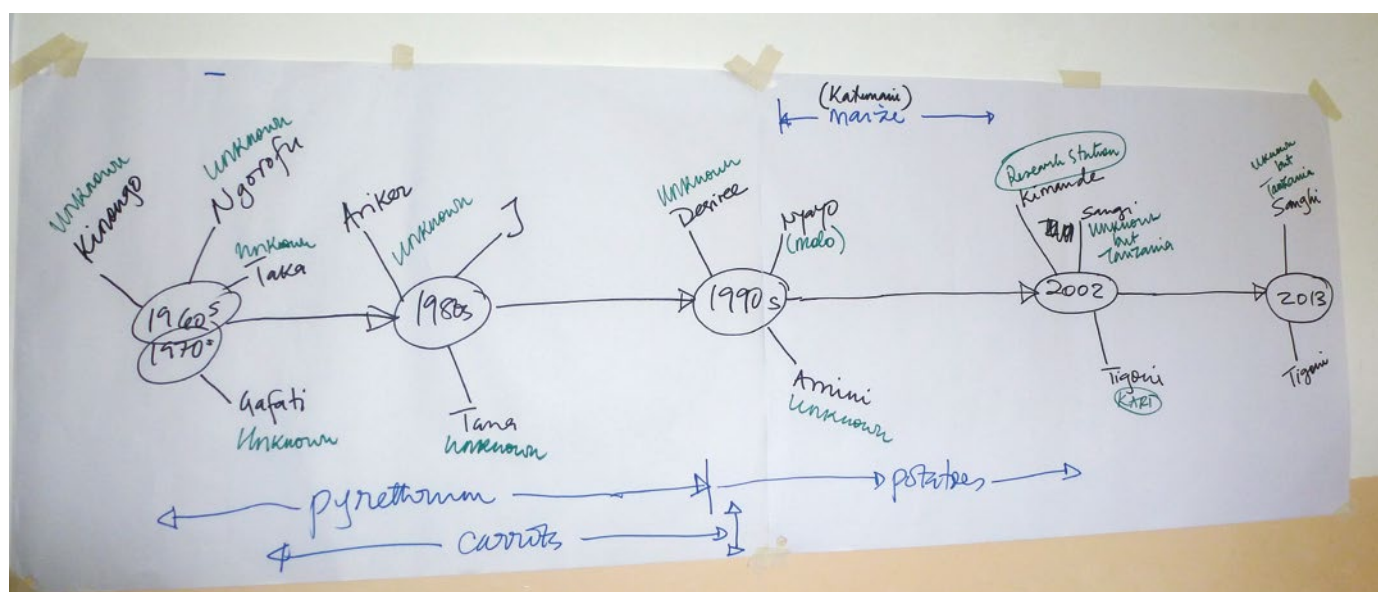 (Katumani)
maize
Unknown
Kinongo
Unknown
Ngorofu
Unknown
Taka
1960s
1970s
Gafati
Unknown
Ariker
Unknown
J
1980s
Tana
Unknown
Unknown
Desiree
Nyayo
(molo)
1990s
Amini
Unknown
Research Station
Kimande
Sangi
Unknown
but
Tanzania
2002
Tigoni
KARI
Unknown
but
Tanzania
Sanghi
2013
Tigoni
pyrethrum
potatoes
carrots